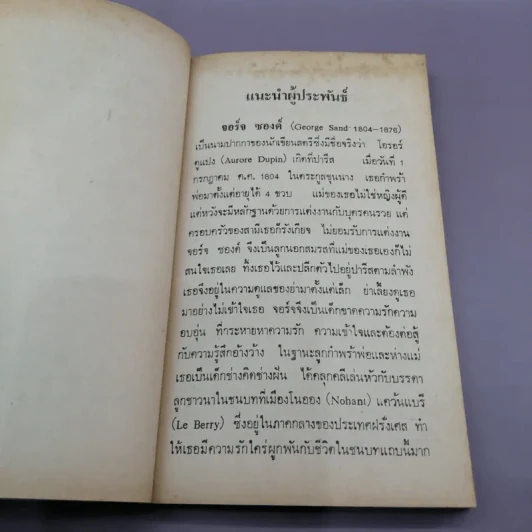 แนะนำผู้ประพันธ์
จอร์จ ซองด์ (George Sand 1804–1876)
เป็นนามปากกาของนักเขียนสตรีซึ่งมีชื่อจริงว่า โอรอร์
ดูแปง (Aurore Dupin) เกิดที่ปารีส เมื่อวันที่ 1
กรกฎาคม ค.ศ. 1804 ในตระกูลขุนนาง เธอกำพร้า
พ่อมาตั้งแต่อายุได้ 4 ขวบ แม่ของเธอไม่ใช่หญิงผู้ดี
แต่หวังจะมีหลักฐานด้วยการแต่งงานกับบุตรคนรวย แต่
ครอบครัวของสามีเธอก็รังเกียจ ไม่ยอมรับการแต่งงาน
จอร์จ ซองด์ จึงเป็นลูกนอกสมรสที่แม่ของเธอเองก็ไม่
สนใจเธอเลย ทิ้งเธอไว้และปลีกตัวไปอยู่ปารีสตามลำพัง
เธอจึงอยู่ในความดูแลของย่ามาตั้งแต่เล็ก ย่าเลี้ยงดูเธอ
มาอย่างไม่เข้าใจเธอ จอร์จจึงเป็นเด็กขาดความรักความ
อบอุ่น ที่กระหายหาความรัก ความเข้าใจและต้องต่อสู้
กับความรู้สึกอ้างว้าง ในฐานะลูกกำพร้าพ่อและห่างแม่
เธอเป็นเด็กช่างคิดช่างฝัน ได้คลุกคลีเล่นหัวกับบรรดา
ลูกชาวนาในชนบทที่เมืองโนออง (Nohant) แคว้นแบรี
(Le Berry) ซึ่งอยู่ในภาคกลางของประเทศฝรั่งเศส ทำ
ให้เธอมีความรักใคร่ผูกพันกับชีวิตในชนบทแถบนี้มาก